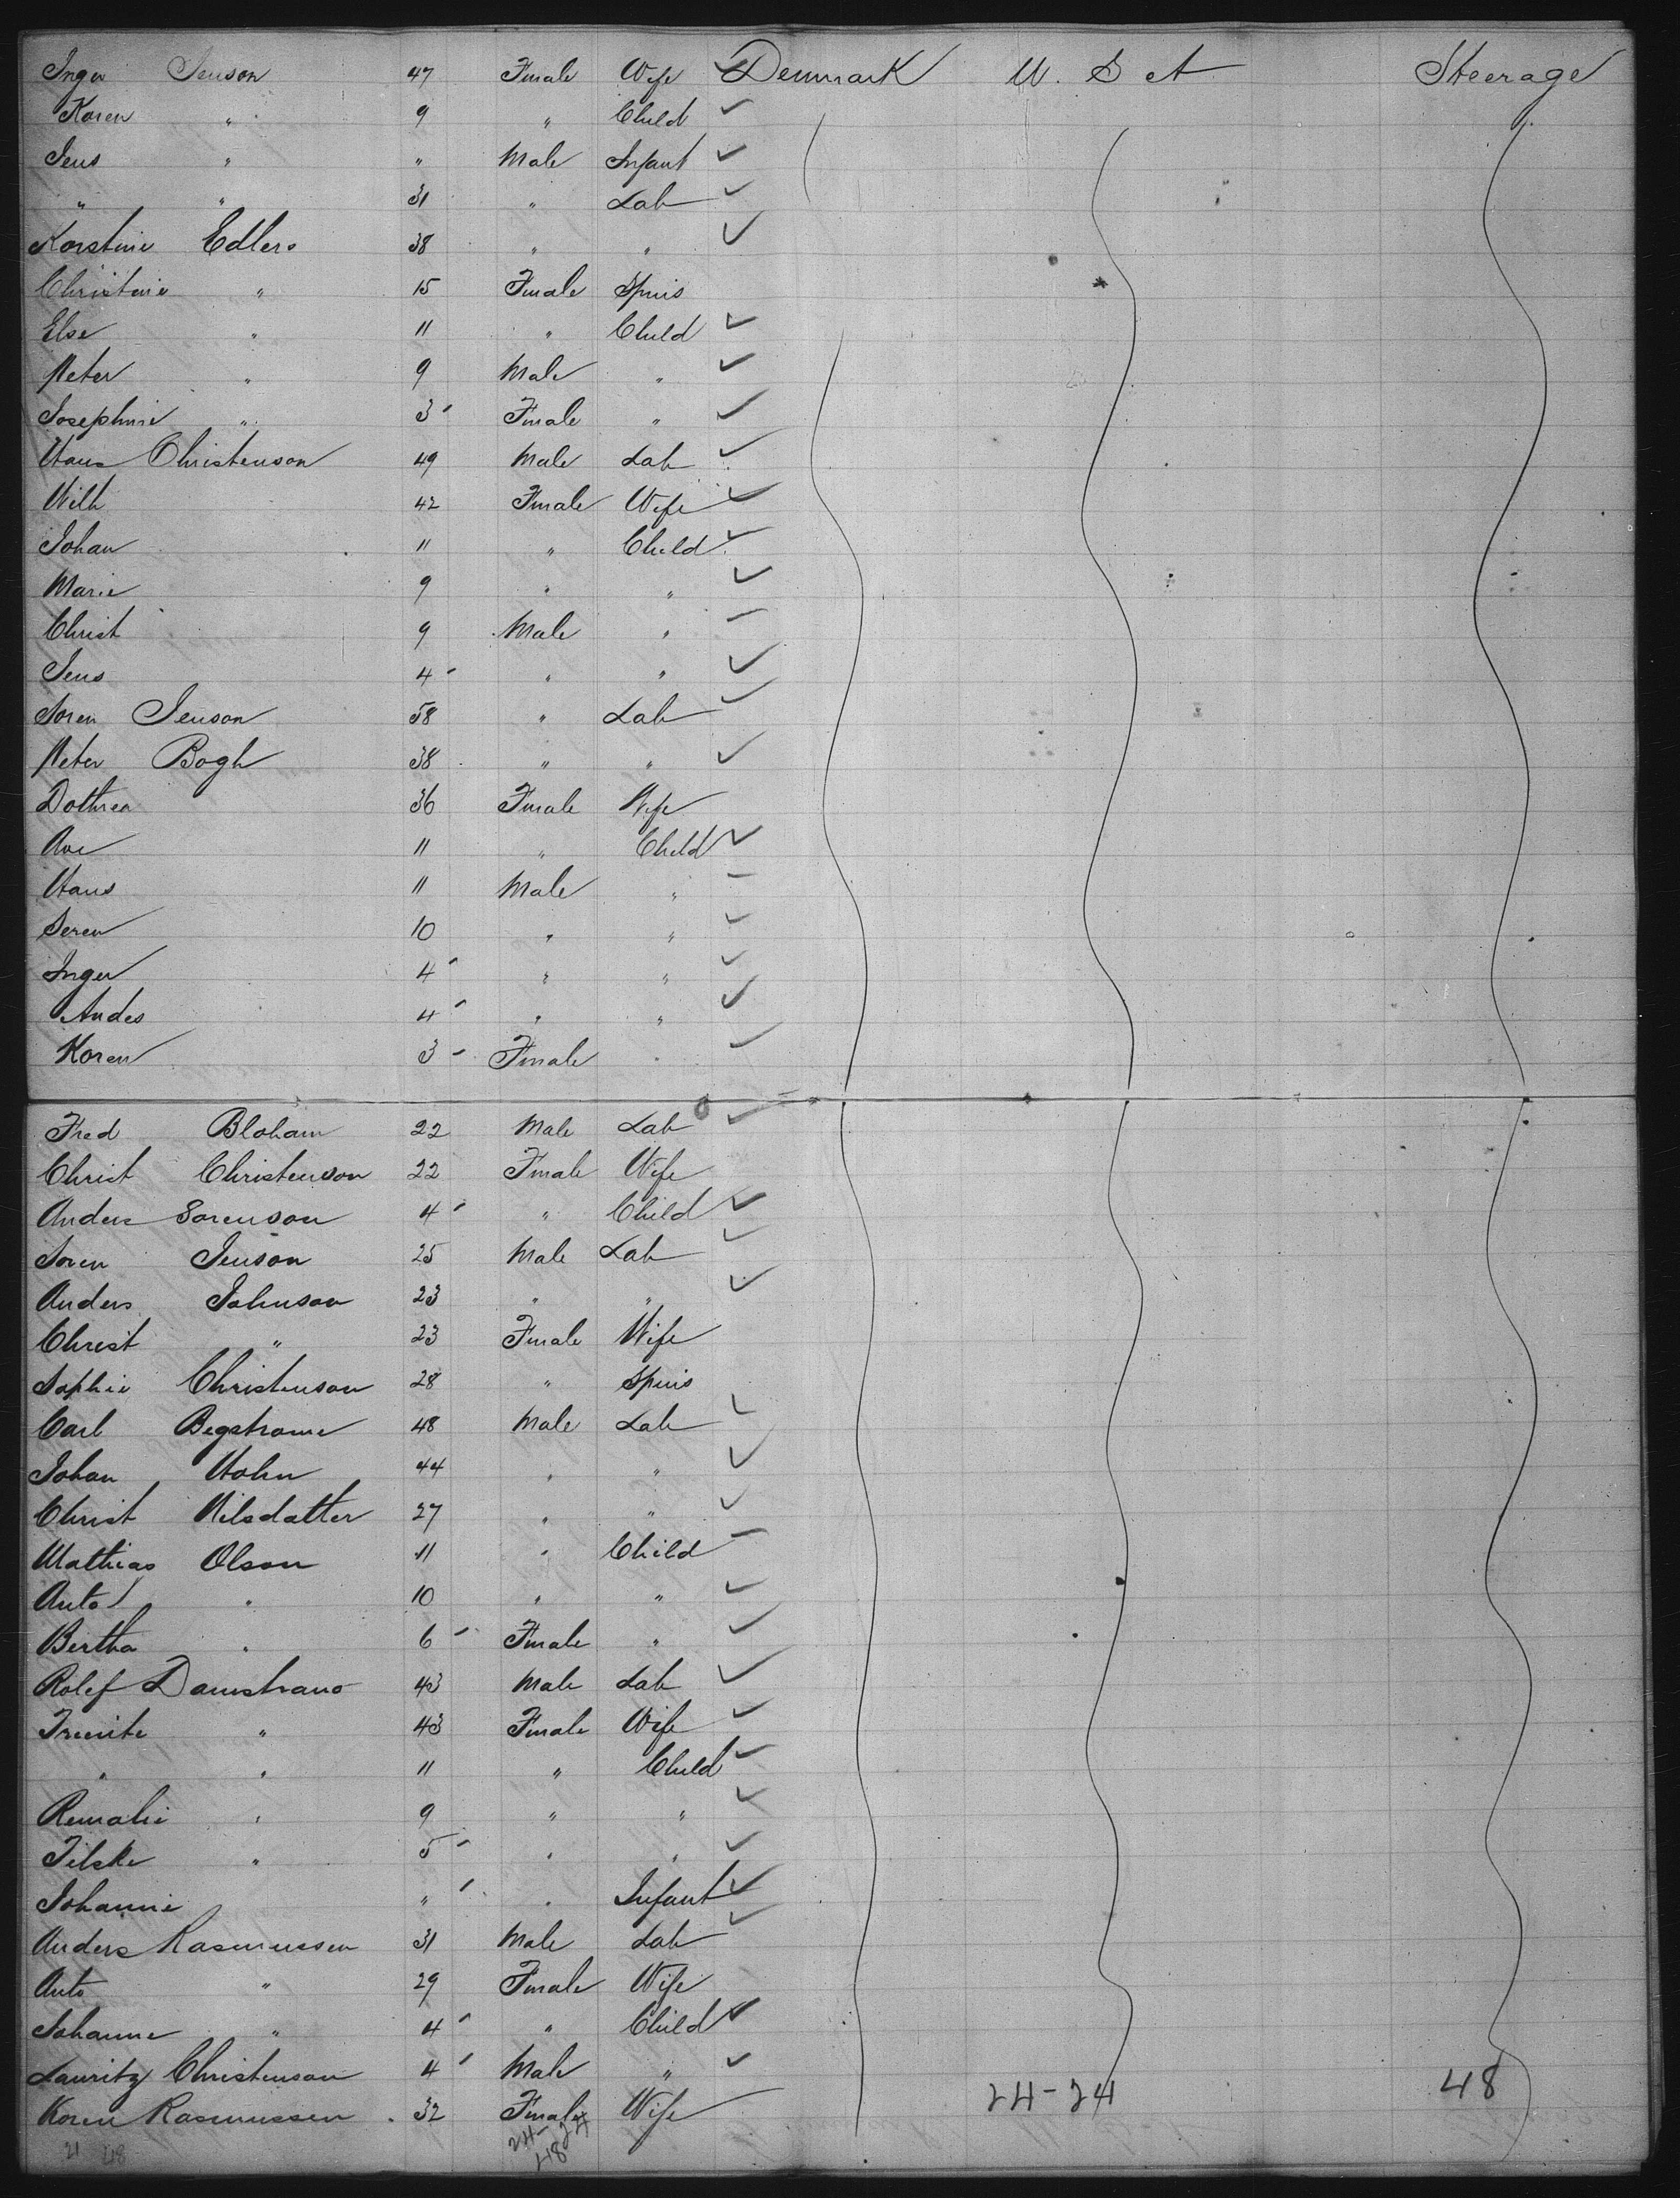 Inger Jenson 47 Female Wife Denmark U. S A Steerage
Koren " 9 " Child
Jens " " Male Infant
" " 31 " Lab
Korstine Edlers 38 " "
Christine " 15 Female Spins
Else " 11 " Child
Peter " 9 Male "
Josephine " 3 Female "
Hans Christenson 49 Male Lab
Wilh 42 Female Wife
Johan 11 " Child
Marie 9 " "
Christ 9 Male "
Jens 4 " "
Soren Jenson 58 " Lab
Peter Bogh 38 " "
Dothrea 36 Female Wife
Ane 11 " Child
Hans 11 Male "
Seren 10 " "
Inger 4 " "
Andes 4 " "
Koren 3 Female "
Fred Bloham 22 Male Lab
Christ Christenson 22 Female Wife
Anders Sorenson 4 " Child
Soren Jenson 25 Male Lab
Anders Johnson 23 " "
Christ " 23 Female Wife
Sophie Christenson 28 " Spins
Carl Begstrome 48 Male Lab
Johan Hohn 44 " "
Christ Nilsdatter 27 " "
Mathias Olson 11 " Child
Anto " 10 " "
Bertha " 6 Female "
Rolef 43 Male Lab
" 43 Female Wife
" " 11 " Child
" 9 " "
Tilske " 5 " "
Johanne " " Infant
Anders Rasmussen 31 Male Lab
Anto " 29 Female Wife
Johanne " 4 " Child
Lauritz Christenson 4 Male "
Koren Rasmussen 32 Female Wife 24-24 48
21 48 24-24
48